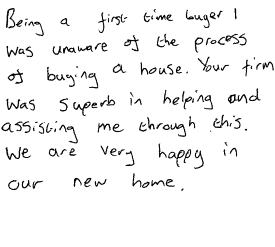 Being a first time buyer I
was unaware of the process
of buying a house. Your firm
was superb in helping and
assisting me through this.
We are very happy in
our new home.